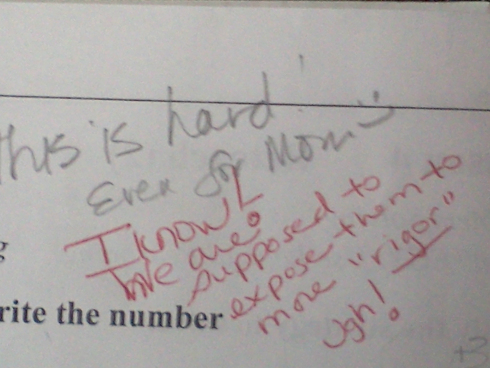 This is hard!
Even for Mom :)
I know!
We are
supposed to
expose them to
more "rigor"
ugh!
rite the number
g
+3